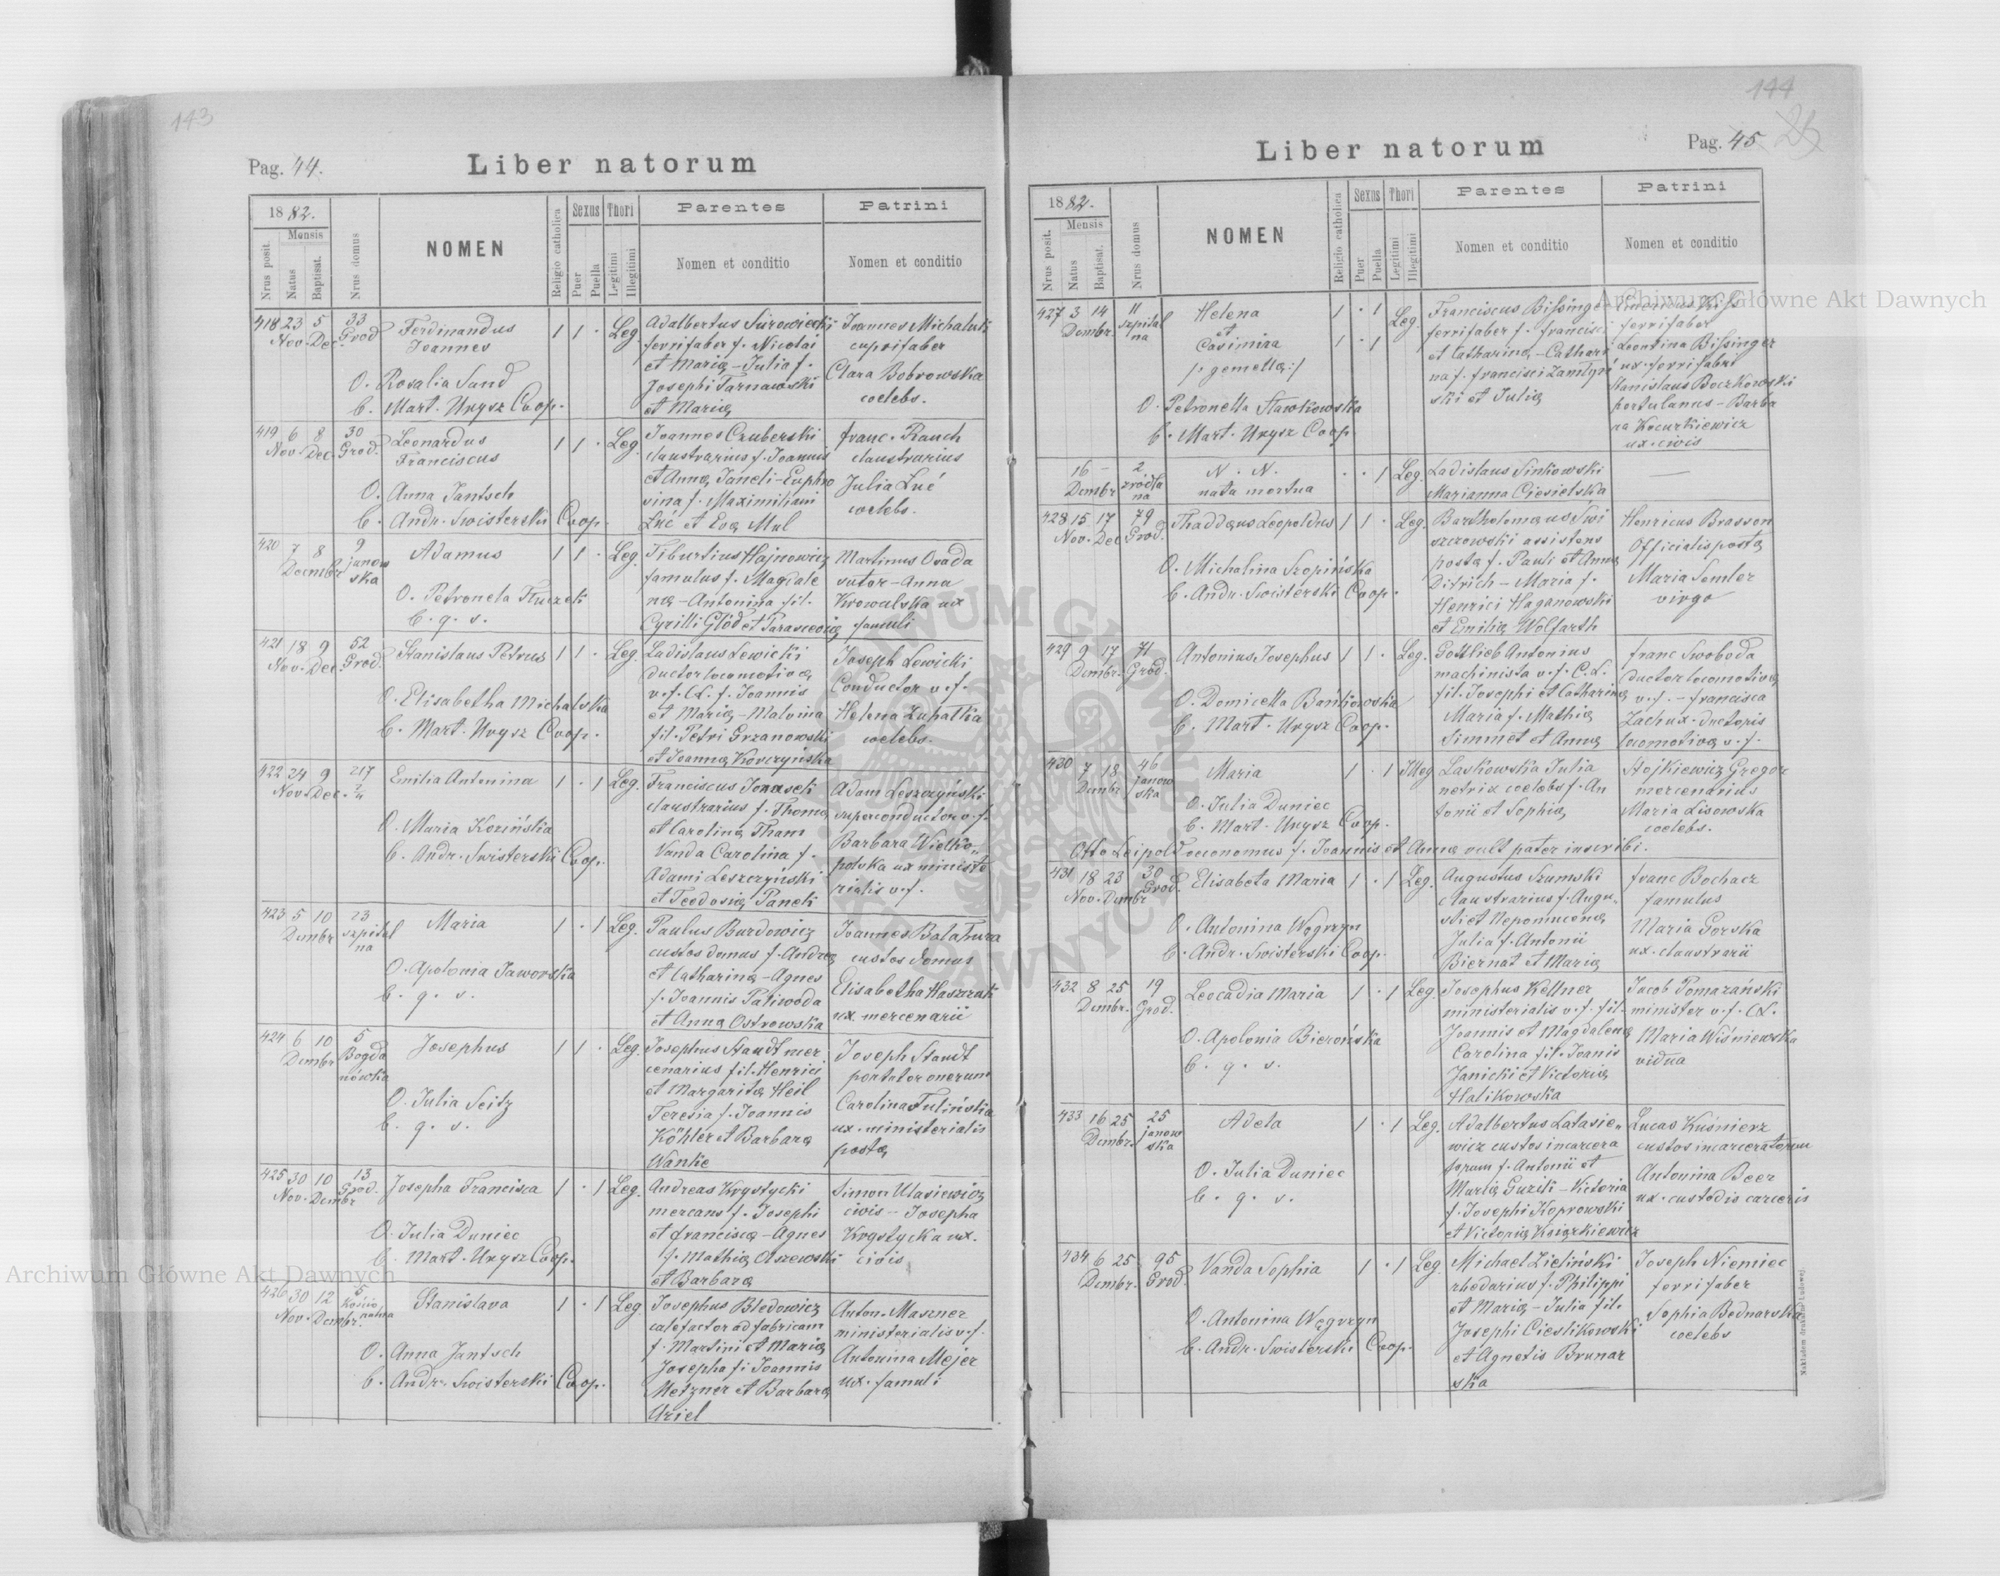 143
Pag. 44.
Liber natorum
1882.
Nrus posit.
Mensis
Natus
Baptisat.
Nrus domus
NOMEN
Religio catholica
Sexus
Puer
Puella
Thori
Legitimi
Illegitimi
Parentes
Nomen et conditio
Patrini
Nomen et conditio
418 23 5 33
Nov. Dec. Grod
Ferdinandus
Joannes
O. Rosalia Sund
B. Mart. Urysz Coop.
1 1 · Leg.
Adalbertus Surowiecki
ferrifaber f. Nicolai
et Maria - Julia f.
Josephi Tarnawski
et Maria
Joannes Michalski
cuprifaber
Clara Bobrowska
coelebs.
419 6 8 30
Nov. Dec. Grod.
Leonardus
Franciscus
O. Anna Jantsch
B. Andr. Swisterski Coop.
1 1 · Leg.
Joannes Czuberski
claustrarius f. Joannis
et Anna Jancli - Euphro
sina f. Maximiliani
Łuć et Eva Mul
Franc. Rauch
claustrarius
Julia Łuć
coelebs.
420 7 8 9
Decembr janow
ska
Adamus
O. Petronela Kuczek
B. q. s.
1 1 · Leg.
Tiburtius Hajnowicz
famulus f. Magdale
na - Antonina fil.
Cyrilli Głód et Parascevia
Martinus Osada
sutor - Anna
Krowulska ux
famuli
421 18 9 52
Nov. Dec. Grod.
Stanislaus Petrus
O. Elisabetha Michalska
B. Mart. Urysz Coop.
1 1 · Leg.
Ladislaus Lewicki
ductor locomotiva
v. f. C.L. f. Joannis
et Maria - Malvina
fil. Petri Grzanowski
et Joanna Korczyńska
Joseph Lewicki
Conductor v. f.
Helena Łupatka
coelebs.
422 24 9 217
Nov. Dec. 2/4
Emilia Antonina
O. Maria Kozińska
B. Andr. Swisterski Coop.
1 · 1 Leg.
Franciscus Jonasch
claustrarius f. Thoma
et Carolina Tham
Vanda Carolina f.
Adami Leszczyński
et Teodosia Panek
Adam Leszczyński
superconductor v. f.
Barbara Wielko-
polska ux ministe
rialis v. f.
423 5 10 23
Dcmbr szpital
na
Maria
O. Apolonia Jaworska
B. q. s.
1 · 1 Leg.
Paulus Burdowicz
custos domus f. Andrea
et Catharina - Agnes
f. Joannis Paliwoda
et Anna Ostrowska
Joannes Bałabura
custos domus
Elisabetha Haszczak
ux mercenarii
424 6 10 5
Dcmbr Bogda
nówka
Josephus
O. Julia Seitz
B. q. s.
1 1 · Leg.
Josephus Staudt mer
cenarius fil. Henrici
et Margarita Heil
Teresia f. Joannis
Köhler et Barbara
Wanke
Joseph Staudt
portator onerum
Carolina Tulińska
ux. ministerialis
posta
425 30 10 13
Nov. Dcmbr Grod.
Josepha Francisca
O. Julia Duniec
B. Mart. Urysz Coop.
1 · 1 Leg.
Andreas Krystycki
mercans f. Josephi
et Francisca - Agnes
f. Mathia Olszewski
et Barbara
Simon Ulasiewicz
civis - Josepha
Krystycka ux.
civis
426 30 12 5
Nov. Dcmbr.
Stanislava
O. Anna Jantsch
B. Andr. Swisterski Coop.
1 · 1 Leg.
Josephus Bledowicz
calefactor ad fabricam
f. Martini et Maria
Josepha f. Joannis
Metzner et Barbara
Uziel
Anton. Maszner
ministerialis v. f.
Antonina Mejer
ux. famuli
144
Liber natorum
Pag. 45
1882.
Nrus posit.
Mensis
Natus
Baptisat.
Nrus domus
NOMEN
Religio catholica
Sexus
Puer
Puella
Thori
Legitimi
Illegitimi
Parentes
Nomen et conditio
Patrini
Nomen et conditio
427 3 14 11
Dcmbr. szpital
na
Helena
et
Casimira
/: gemella :/
O. Petronella Stawkowska
B. Mart. Urysz Coop
1 · 1 Leg.
1 · 1
Franciscus Bissinger
ferrifaber f. Francisci
et Catharina - Cathari
na f. Francisci
ski et Julia
ferrifaber
Leontina Bissinger
ux. ferrifabri
Stanislaus Boczkowski
portulanus - Barba
ra Kocurkiewicz
ux. civis
16 - 2
Dcmbr źródla
na
N. N.
nata mortua
· · 1 Leg.
Ladislaus Sinkowski
Marianna Ciesielska
—
428 15 17 79
Nov. Dec Grod.
Thaddaus Leopoldus
O. Michalina Szopińska
B. Andr. Swisterski Coop.
1 1 · Leg.
Bartholomaus Swi
szczowski assistens
posta f. Pauli et Anna
Ditrich - Maria f.
Henrici Haganowski
et Emilia Wolfarth
Henricus Brasson
Officialis posta
Maria Semler
virgo
429 9 17 71
Dcmbr. Grod.
Antonius Josephus
O. Domicella Bańkowska
B. Mart. Urysz Coop.
1 1 · Leg.
Gottlieb Antonius
machinista v. f. C.L.
fil. Josephi et Catharina
Maria f. Mathia
Simmet et Anna
Franc Swoboda
ductor locomotiva
v. f. - Francisca
Lach ux. ductoris
locomotiva v. f.
430 7 18 46
Dcmbr janow
ska
Maria
O. Julia Duniec
B. Mart. Urysz Coop.
1 · 1 Illeg.
Laskowska Julia
netrix coelebs f. An
tonii et Sophia
Stojkiewicz Gregor
mercenarius
Maria Lisowska
coelebs.
Otto Leipold oeconomus f. Joannis et Anna vult pater inscribi.
431 18 23 30
Nov. Dcmbr Grod.
Elisabeta Maria
O. Antonina Węgrzyn
B. Andr. Swisterski Coop.
1 · 1 Leg.
Augustus Szumski
claustrarius f. Augu-
sti et Nepomucena
Julia f. Antonii
Biernat et Maria
Franc Bochacz
famulus
Maria Gorska
ux. claustrarii
432 8 25 19
Dcmbr. Grod.
Leocadia Maria
O. Apolonia Bierońska
B. q. s.
1 · 1 Leg.
Josephus Kellner
ministerialis v. f. fil.
Joannis et Magdalena
Carolina fil. Joanis
Janicki et Victoria
Halikowska
Jacob Pomarański
minister v. f. CL.
Maria Wiśniewska
vidua
433 16 25 25
Dcmbr. janow
ska
Adela
O. Julia Duniec
B. q. s.
1 · 1 Leg.
Adalbertus Latasie-
wicz custos incarcera
torum f. Antonii et
Maria Guzik - Victoria
f. Josephi Koprowski
et Victoria Książkiewicz
Lucas Kuśnierz
custos incarceratorum
Antonina Beer
ux. custodis carceris
434 6 25 95
Dcmbr. Grod.
Vanda Sophia
O. Antonina Węgrzyn
B. Andr. Swisterski Coop.
1 · 1 Leg.
Michael Zieliński
rhedarius f. Philippi
et Maria - Julia fil.
Josephi Cieslikowski
et Agnetis Brunar
ska
Joseph Niemiec
ferrifaber
Sophia Bednarska
coelebs
Nakładem drukarni Ludowej.
Archiwum Główne Akt Dawnych
Archiwum Główne Akt Dawnych